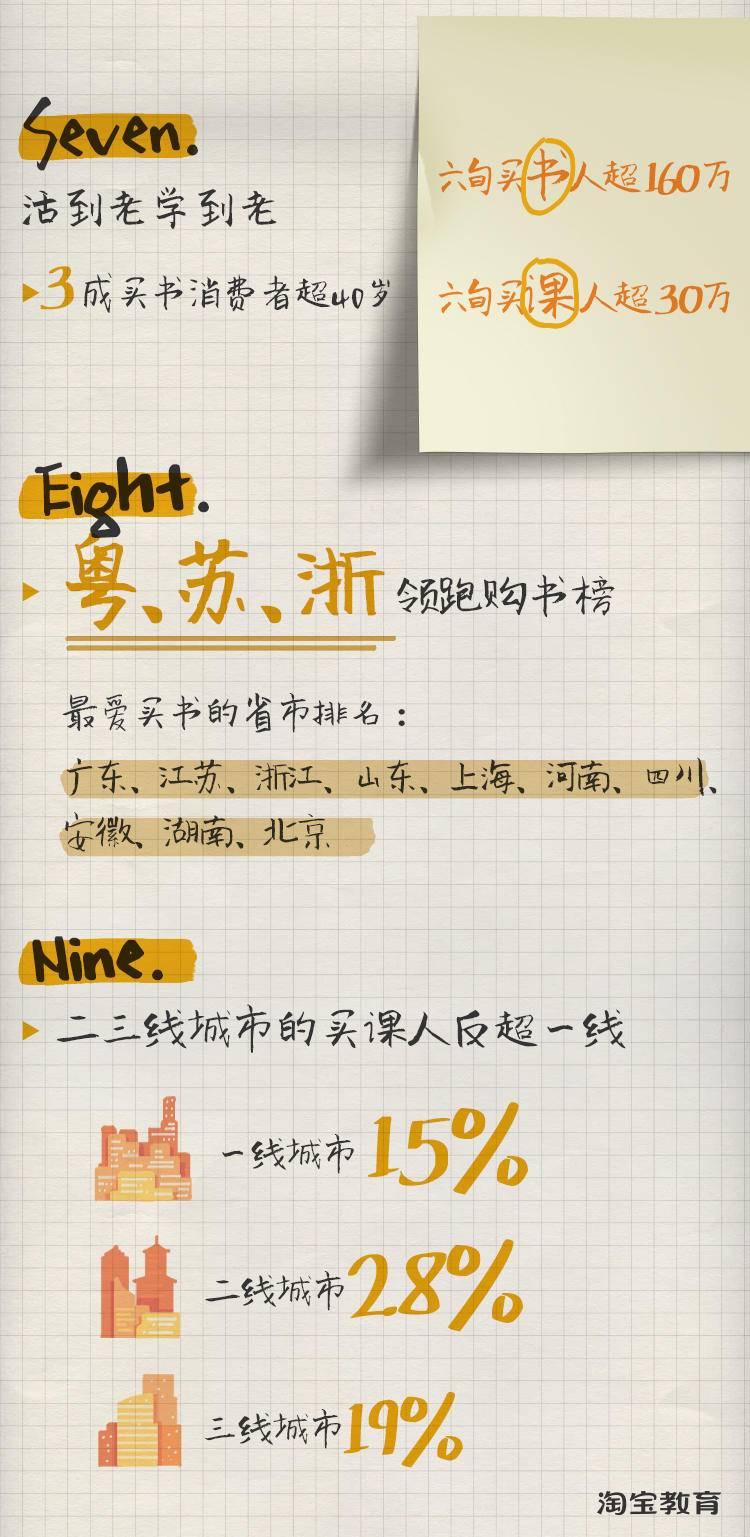 Seven.
活到老学到老
3成买书消费者超40岁
六旬买书人超160万
六旬买课人超30万
Eight.
粤、苏、浙领跑购书榜
最爱买书的省市排名：
广东、江苏、浙江、山东、上海、河南、四川、
安徽、湖南、北京
Nine.
二三线城市的买课人反超一线
一线城市15%
二线城市28%
三线城市19%
淘宝教育